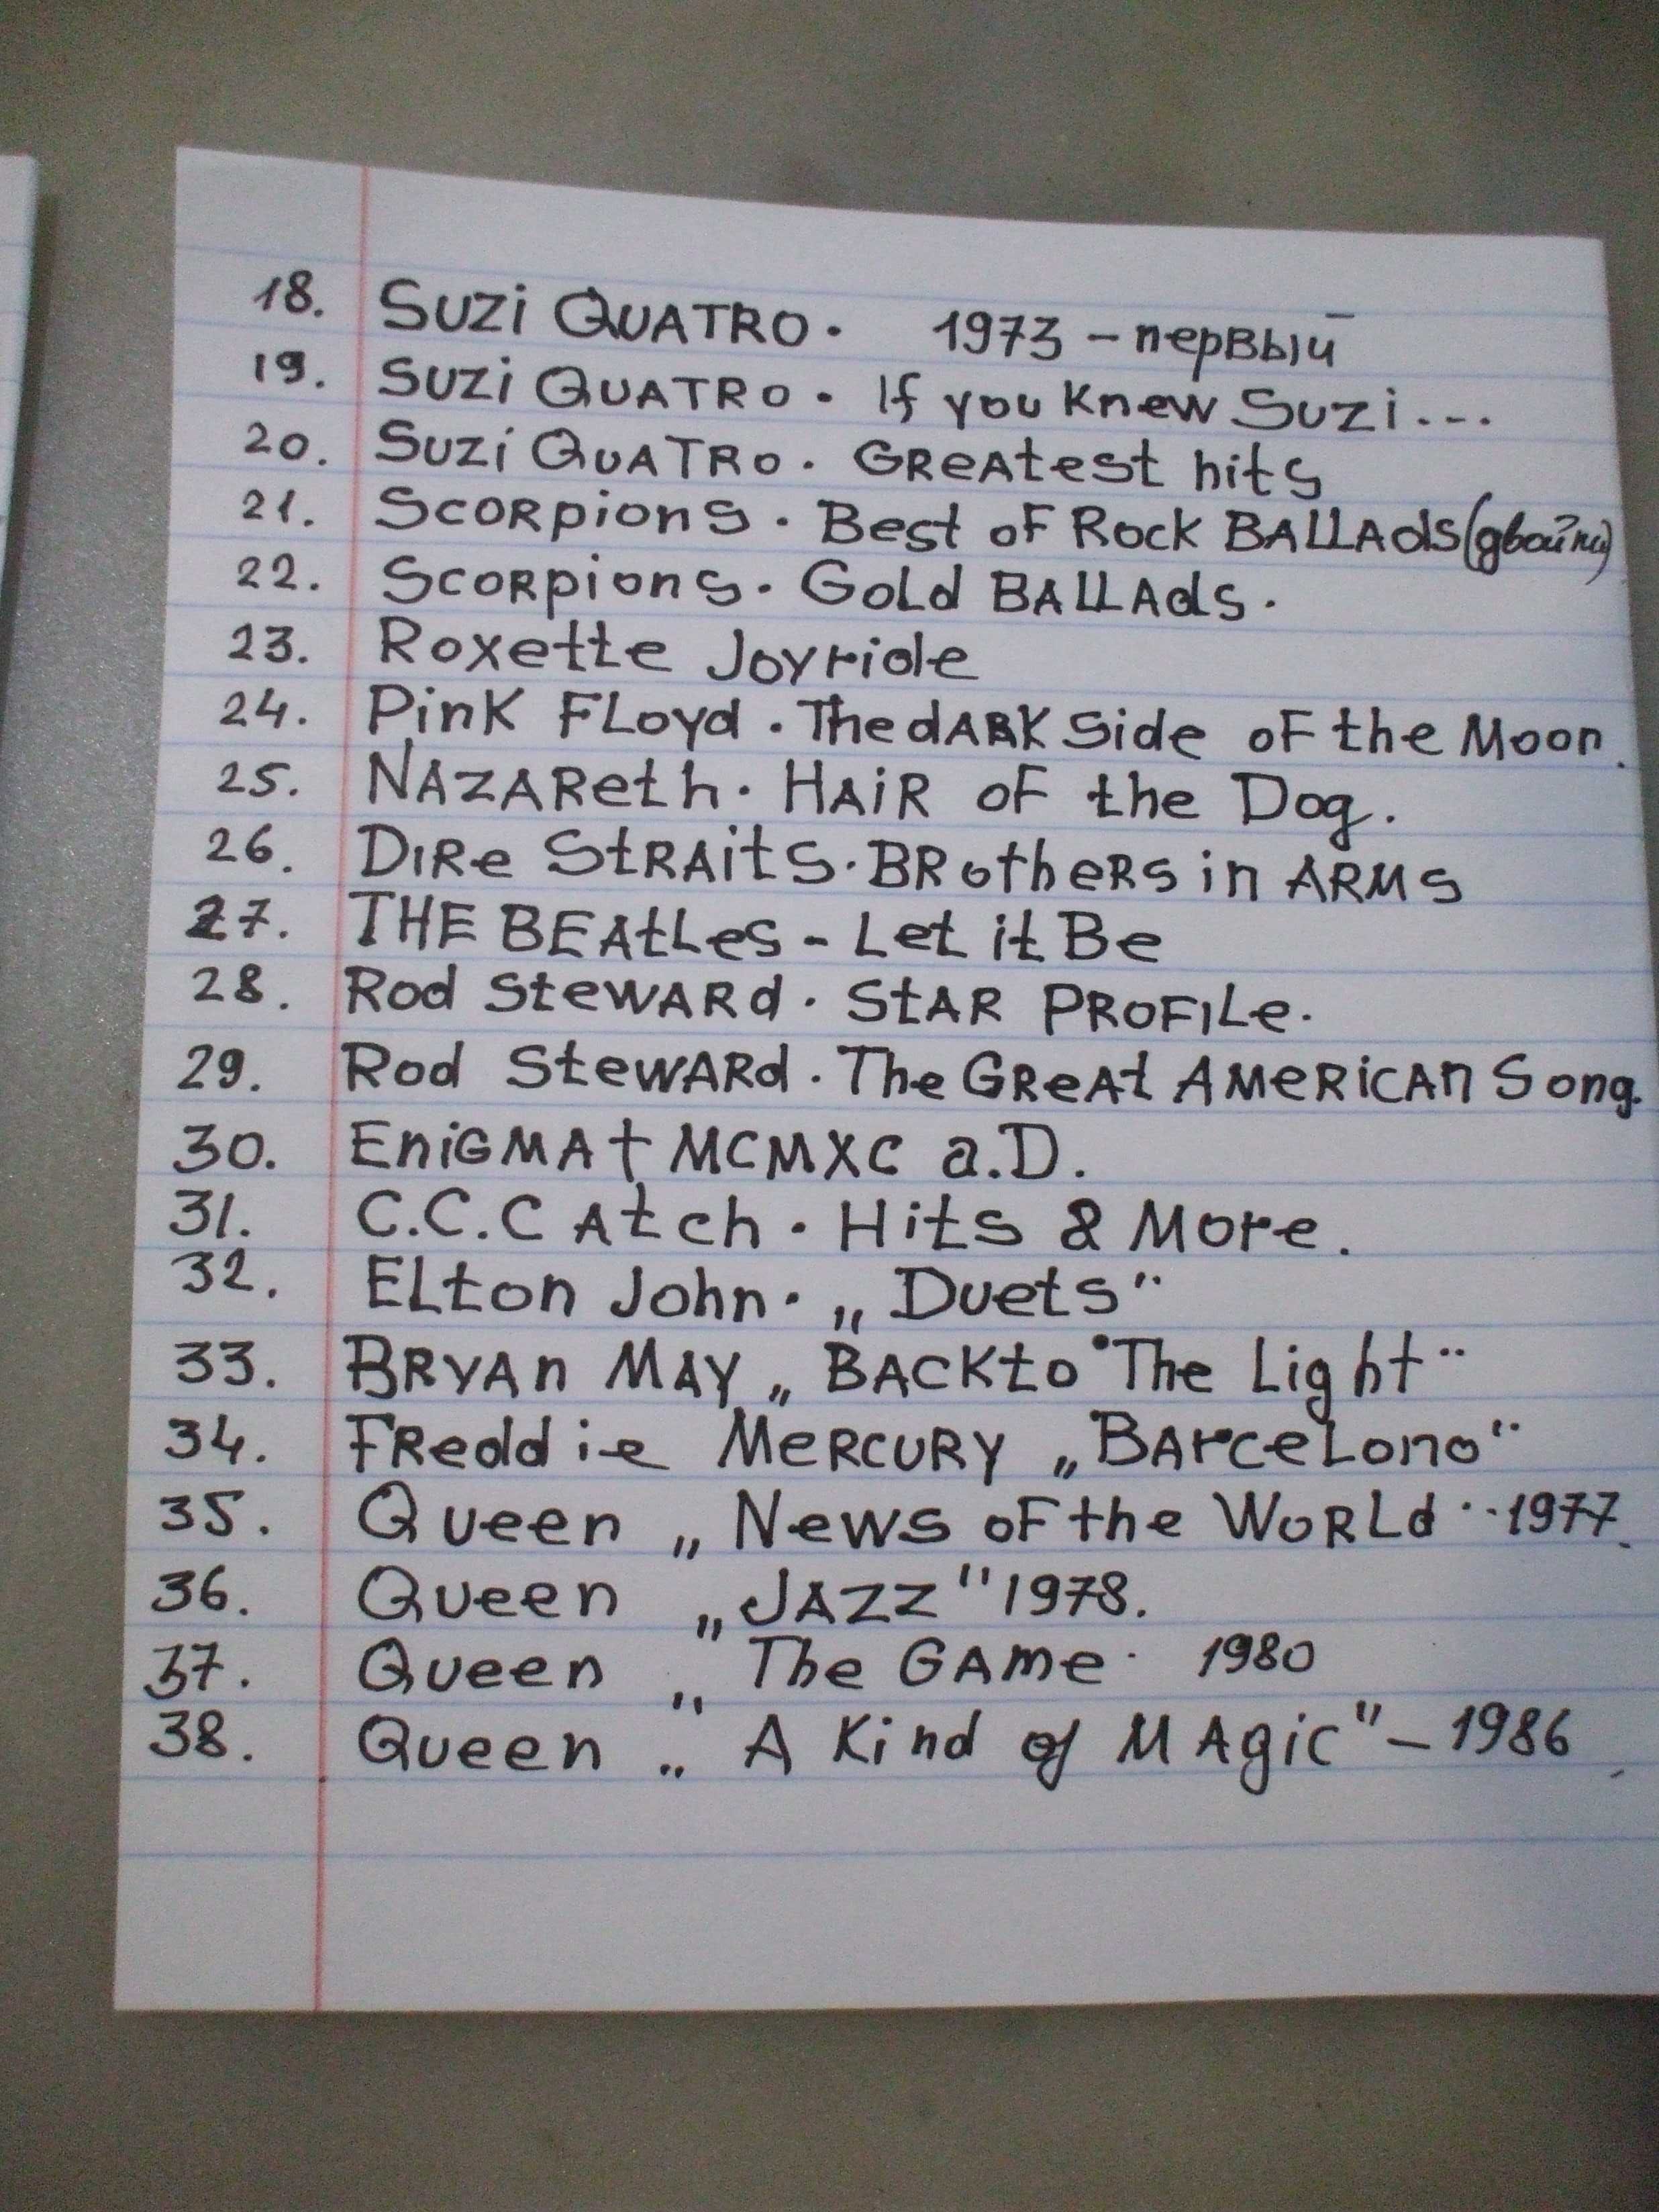 18. Suzi QUATRO. 1973 - первый
19. Suzi QUATRO. If you Knew Suzi...
20. Suzi QuATRO. GReAtest hits
21. ScoRpions. Best oF Rock BALLAds (двойн)
22. ScoRpions. Gold BALLAds.
23. Roxette Joyride
24. Pink FLoyd. The dARK Side oF the Moon.
25. NAZAReth. HAiR oF the Dog.
26. DiRe StRAitS. BRotheRs in ARMS
27. THE BEAtLes - Let it Be
28. Rod StewARd. StAR PROFiLe.
29. Rod StewARd. The GReAt AMeRicAn Song.
30. EniGMA † MCMXC a.D.
31. C.C.CAtch. Hits & More.
32. ELton John. „Duets"
33. BRYAn MAY „BACK to The Light"
34. FReddie MeRCURY „BArceLono"
35. Queen „News oF the WoRLd" - 1977.
36. Queen „JAZZ" 1978.
37. Queen „The GAme" 1980
38. Queen „A Kind of MAgic" - 1986